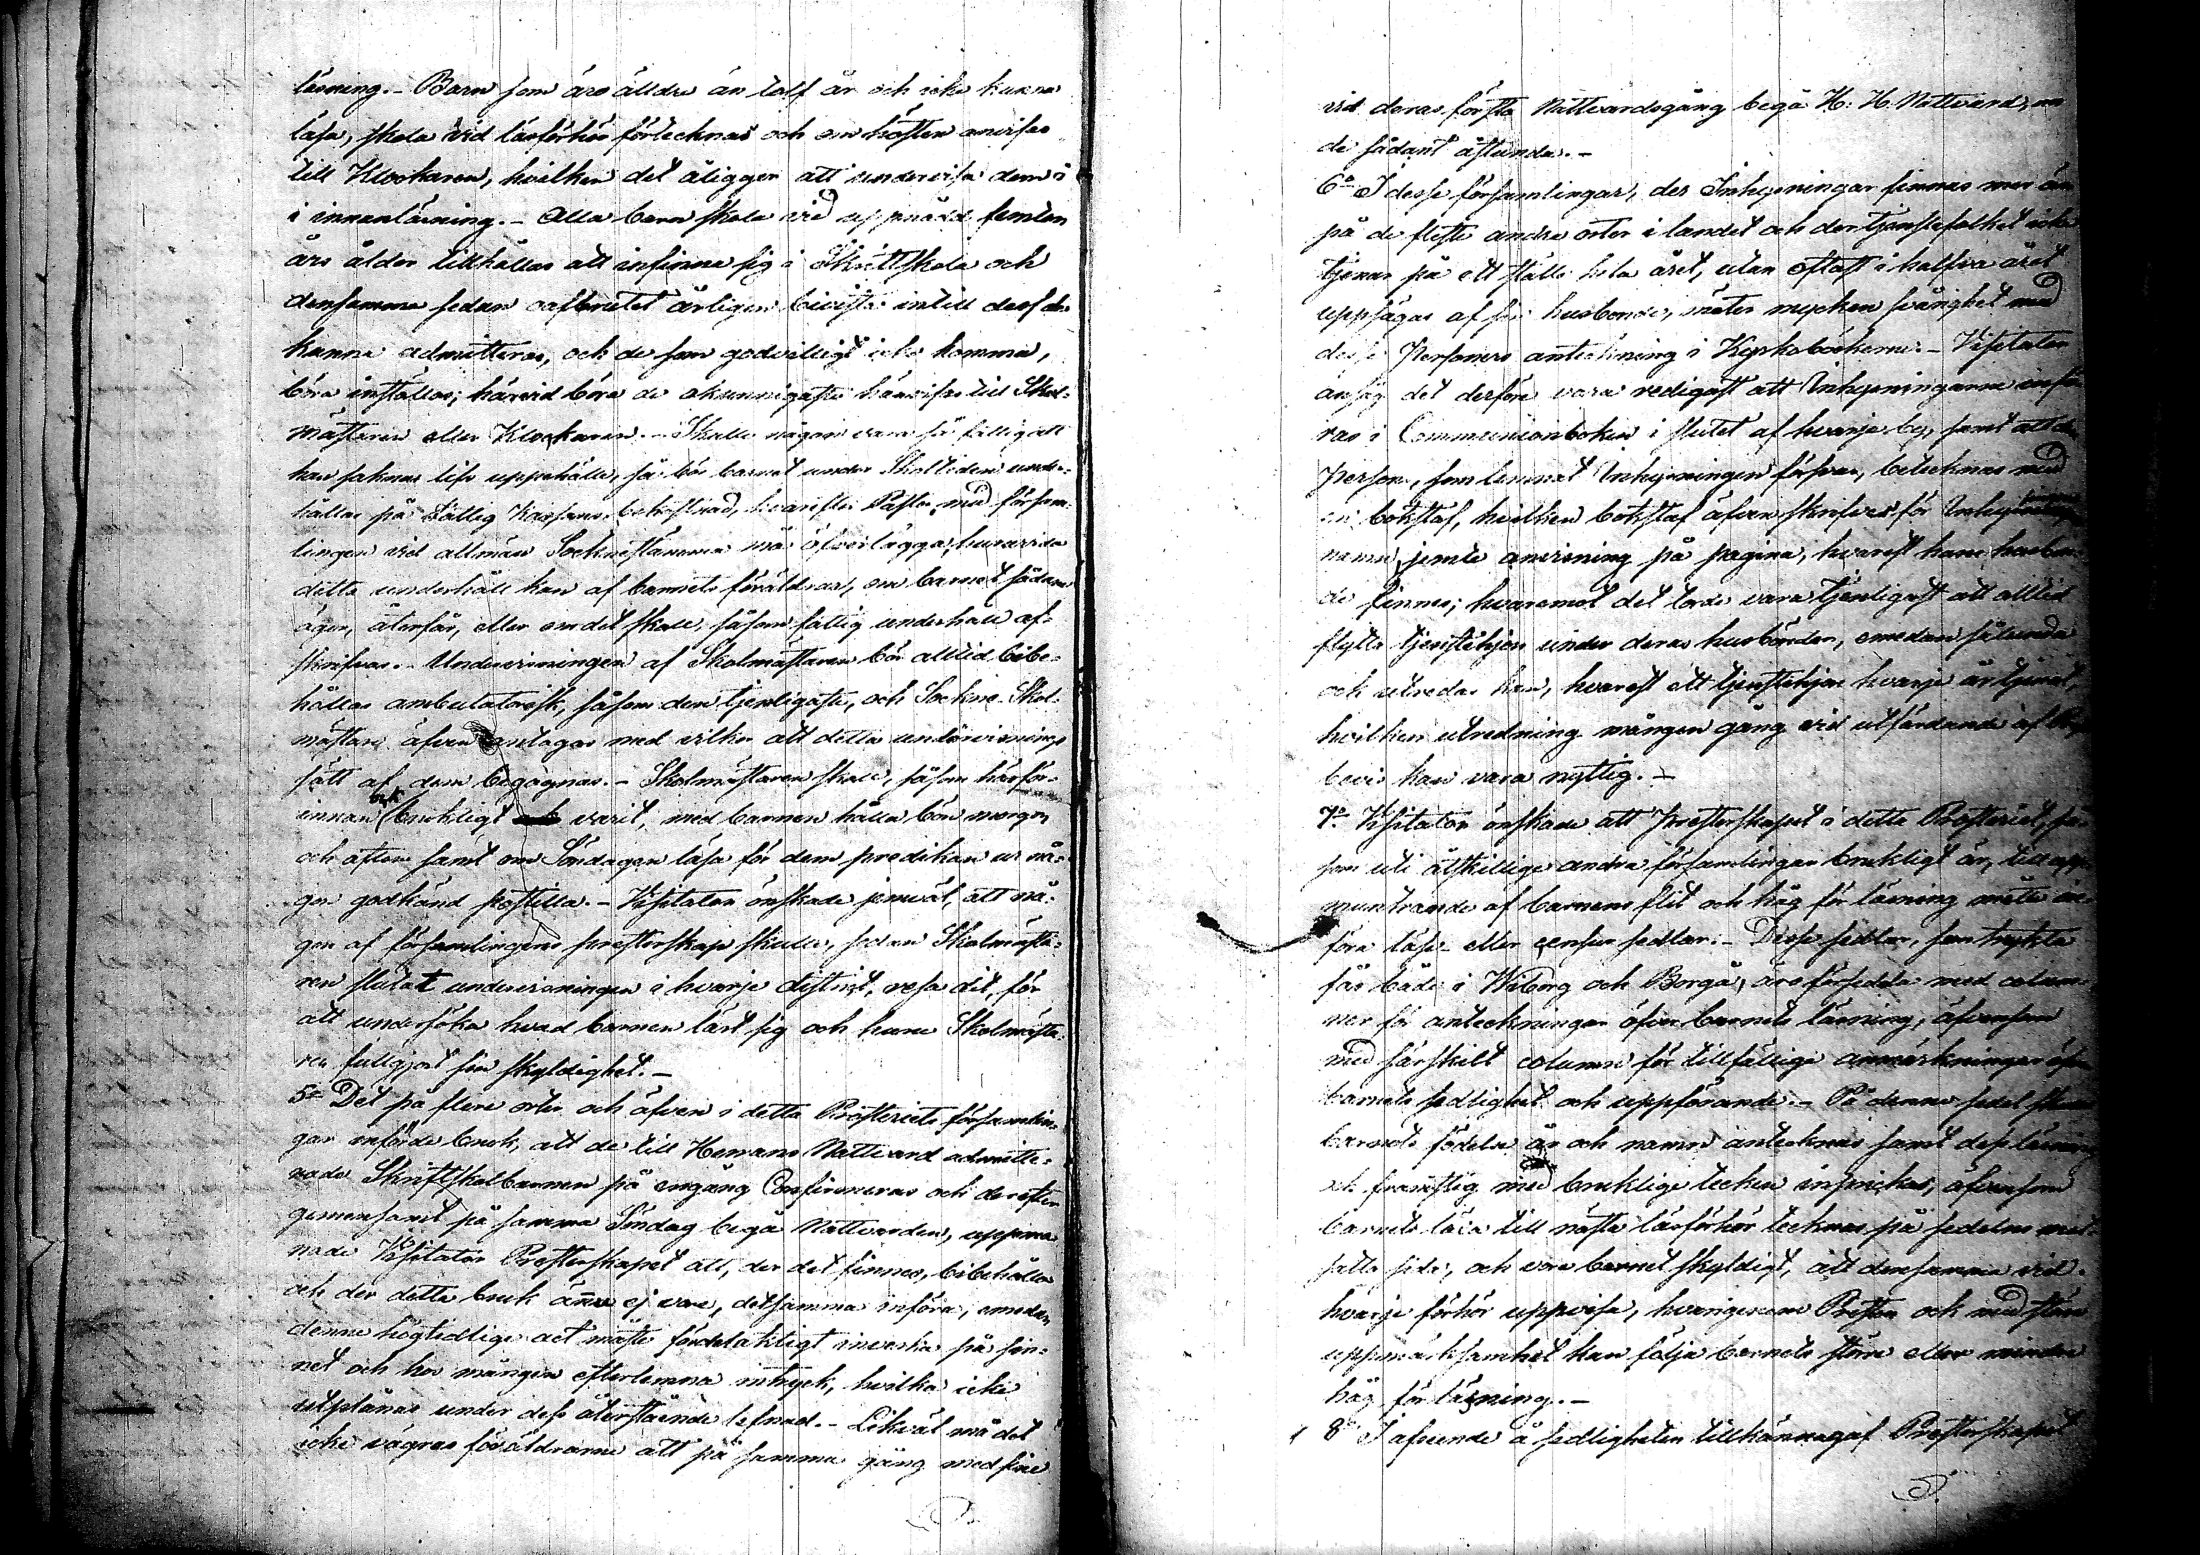 läsning. - Barn som äro älldre än tolf år och icke kunna
läsa, skola vid läsförhör förtecknas och om hösten anvisas
till Klockaren, hvilken det åligger att undervisa dem i
i innanläsning. - Alla barn skola vid uppnådd femton
års ålder tillhållas att infinna sig i Skriftskola och
densamma sedan oafbrutet årligen bivista intill dess de
kunna admitteras, och de som godvilligt icke komma,
böra inställas; härvid böra de okunnigaste hänvisas till Skol-
mästaren eller Klockaren. - Skulle någon vara så fattig att
han saknar lifs uppehälle, så bör barnet under Skoltiden under-
hållas på Fattig Kassans bekostnad, hvarefter Pastor med försam-
lingen vid allmän Socknestämma må öfverlägga, huruvida
detta underhåll kan af barnets föräldrar, om barnet sådana
äger, återfås, eller om det skall, såsom fattig underhåll af-
skrifvas. - Undervisningen af Skolmästaren bör alltid bibe-
hållas ambulatorisk, såsom den tjenligaste, och Sockne Skol-
mästare äfven antagas med vilkor att detta undervisnings
sätt af dem begagnas. - Skolmästaren skall, såsom härför-
innan brukligt varit, med barnen hålla bön morgon
och afton samt om Söndagen läsa för dem predikan ur nå-
gon godkänd postilla. - Visitator önskade jemväl, att nå-
gon af församlingens presterskap skulle, sedan Skolmästa-
ren slutat undervisningen i hvarje distrikt, resa dit, för
att undersöka hvad barnen lärt sig och huru Skolmästa-
ren fullgjort sin skyldighet. -
5o Det på flere orter och äfven i detta Prosteriets församlin-
gar införde bruk, att de till Herrans Nattvard admitte-
rade Skriftskolbarnen på engång Confirmeras och derefter
gemensamt på samma Söndag begå Nattvarden, uppma
nade Visitator Presterskapet att, der det finnes, bibehålla
och der detta bruk ännu ej vore, detsamma införa, emedan
denna högtidliga act måste fördelaktigt inverka på sin-
net och hos mången efterlemna intryck, hvilka icke
utplånas under dess återstående lefnad. - Likväl må det
icke vägras föräldrarne att på samma gång med sine
vid deras första Nattvardsgång begå H: H. Nattvard, om
de sådant åstunda. -
6o I desse församlingar, der Inhysningar finnas mer än
på de fleste andra orter i landet och der tjenstefolket icke
tjenar på ett ställe hela året, utan oftast i halfva året
uppsägas af sin husbonde, möter mycken svårighet med
desse Personers anteckning i Kyrkoböckerna. - Visitator
ansåg det derföre vara redigast att Inhysningarne infö-
ras i Communionboken i slutet af hvarje by, samt att den
Person, som lemnat Inhysningen försvar, betecknas med
en bokstaf, hvilken bokstaf äfven skrifves för
namn jemte anvisning på pagina, hvarest hans husbon-
de finnes; hvaremot det torde vara tjenligast att alltid
flytta tjenstehjon under deras husbönder, emedan sålunda
och utredas kan, hvarest ett tjenstehjon hvarje år tjenat,
hvilken utredning mången gång vid utfärdande af
bevis kan vara nyttig. -
7o Visitator önskade att Presterskapet i detta Prosteriet, så-
som uti åtskillige andra församlingar brukligt är, till upp-
muntrande af barnens flit och håg för läsning måtte in-
föra läse- eller censur sedlar. - Desse sedlar, som tryckta
fås både i Wiborg och Borgå, äro försedda med colum-
ner för anteckningar öfver barnets läsning, äfvensom
med särskilt column för tillfällige anmärkningar öfver
barnets sedlighet och uppförande. - På denna sedel
barnets födelse år och namn antecknas samt dess läsning
och framsteg med brukliga tecken inprickas, äfvensom
barnets läxa till nästa läsförhör tecknas på sedelns mot-
satta sida, och vore barnet skyldigt, att densamma vid
hvarje förhör uppvisa, hvarigenom Presten och med större
uppmärksamhet kan följa barnets större eller mindre
håg för läsning. -
8o I afseende å sedligheten tillkännagaf Presterskapet